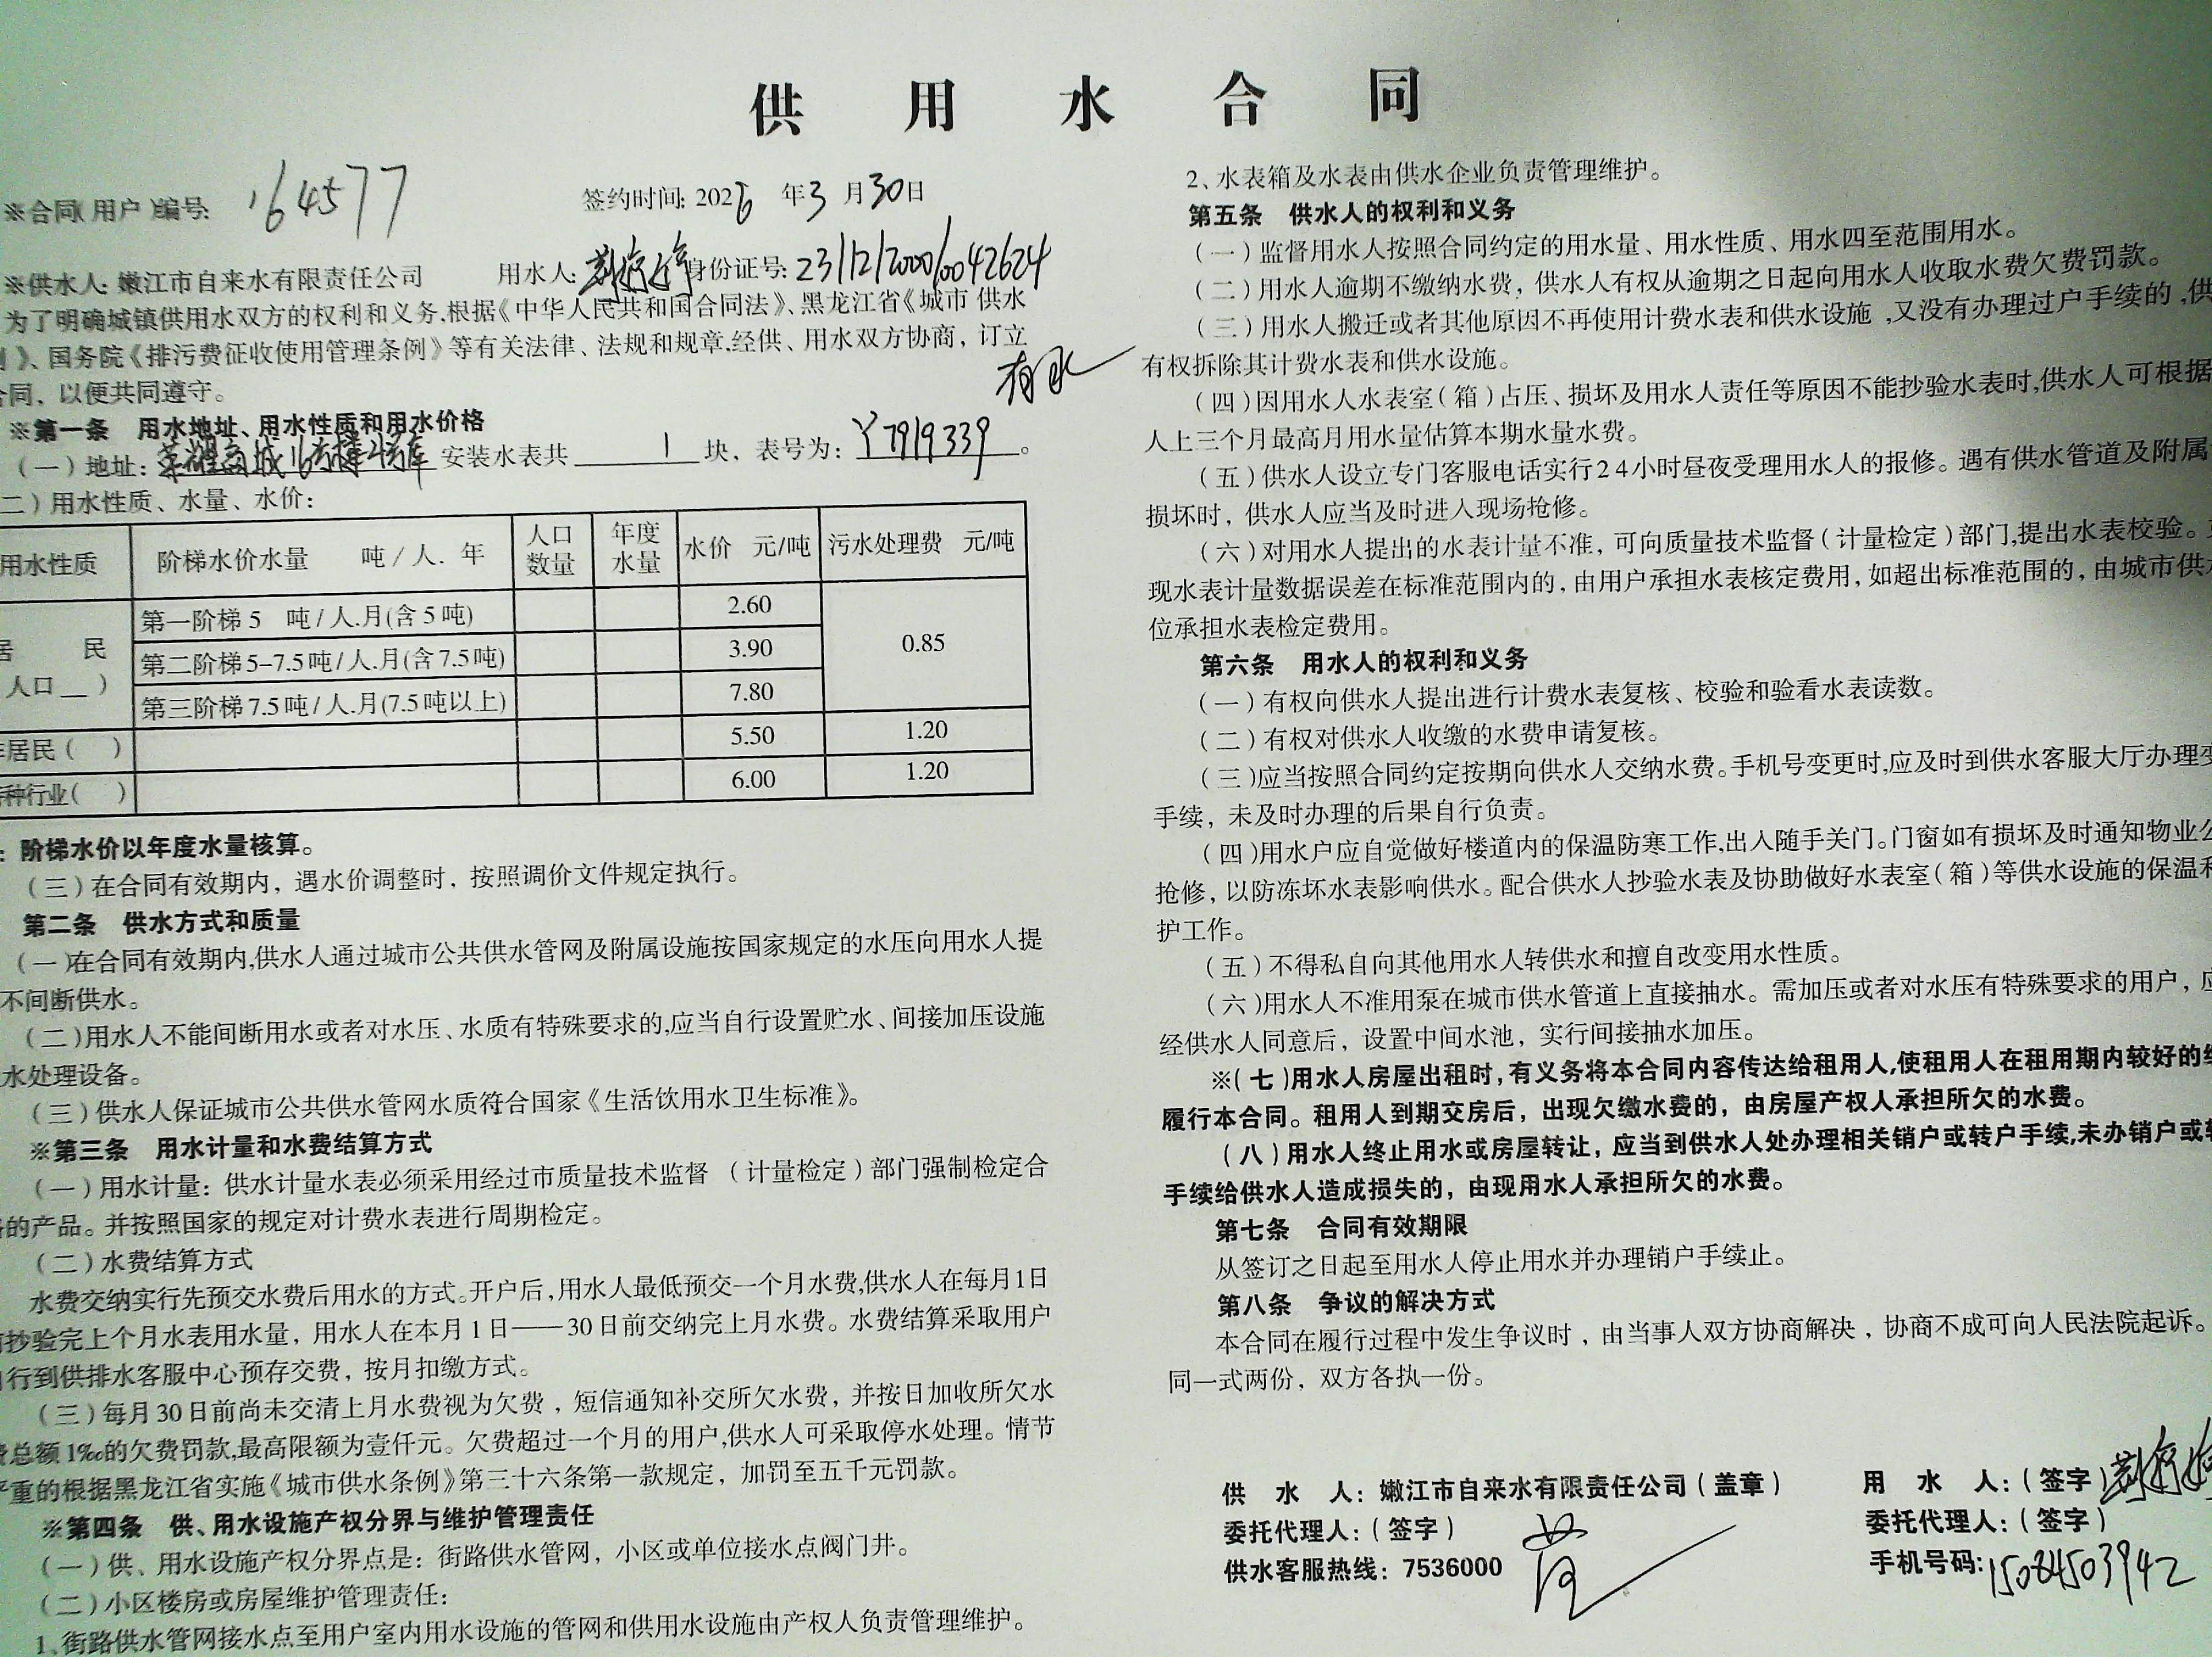 供 用 水 合 同
※合同(用户)编号: 164577
签约时间: 2026 年 3 月 30 日
※供水人: 嫩江市自来水有限责任公司 用水人: 身份证号: 231121200010042624
为了明确城镇供用水双方的权利和义务,根据《中华人民共和国合同法》、黑龙江省《城市 供水
》、国务院《排污费征收使用管理条例》等有关法律、法规和规章,经供、用水双方协商，订立
合同，以便共同遵守。
有水
※第一条 用水地址、用水性质和用水价格
(一)地址: 荣耀商城16号楼4号库 安装水表共 1 块，表号为: Y7919339。
二)用水性质、水量、水价:
用水性质 阶梯水价水量 吨/人.年 人口数量 年度水量 水价 元/吨 污水处理费 元/吨
居 民 第一阶梯 5 吨/人.月(含 5 吨) 2.60 0.85
人口__) 第二阶梯 5-7.5 吨/人.月(含 7.5 吨) 3.90
第三阶梯 7.5 吨/人.月(7.5 吨以上) 7.80
居民( ) 5.50 1.20
种行业( ) 6.00 1.20
: 阶梯水价以年度水量核算。
(三)在合同有效期内，遇水价调整时，按照调价文件规定执行。
第二条 供水方式和质量
(一)在合同有效期内,供水人通过城市公共供水管网及附属设施按国家规定的水压向用水人提
不间断供水。
(二)用水人不能间断用水或者对水压、水质有特殊要求的,应当自行设置贮水、间接加压设施
水处理设备。
(三)供水人保证城市公共供水管网水质符合国家《生活饮用水卫生标准》。
※第三条 用水计量和水费结算方式
(一)用水计量：供水计量水表必须采用经过市质量技术监督 (计量检定)部门强制检定合
的产品。并按照国家的规定对计费水表进行周期检定。
(二)水费结算方式
水费交纳实行先预交水费后用水的方式。开户后,用水人最低预交一个月水费,供水人在每月1日
抄验完上个月水表用水量，用水人在本月 1 日——30 日前交纳完上月水费。水费结算采取用户
行到供排水客服中心预存交费，按月扣缴方式。
(三)每月 30 日前尚未交清上月水费视为欠费，短信通知补交所欠水费，并按日加收所欠水
费总额 1‰的欠费罚款,最高限额为壹仟元。欠费超过一个月的用户,供水人可采取停水处理。情节
严重的根据黑龙江省实施《城市供水条例》第三十六条第一款规定，加罚至五千元罚款。
※第四条 供、用水设施产权分界与维护管理责任
(一)供、用水设施产权分界点是：街路供水管网，小区或单位接水点阀门井。
(二)小区楼房或房屋维护管理责任:
1、街路供水管网接水点至用户室内用水设施的管网和供用水设施由产权人负责管理维护。
2、水表箱及水表由供水企业负责管理维护。
第五条 供水人的权利和义务
(一)监督用水人按照合同约定的用水量、用水性质、用水四至范围用水。
(二)用水人逾期不缴纳水费，供水人有权从逾期之日起向用水人收取水费欠费罚款。
(三)用水人搬迁或者其他原因不再使用计费水表和供水设施,又没有办理过户手续的,供
有权拆除其计费水表和供水设施。
(四)因用水人水表室(箱)占压、损坏及用水人责任等原因不能抄验水表时,供水人可根据
人上三个月最高月用水量估算本期水量水费。
(五)供水人设立专门客服电话实行24小时昼夜受理用水人的报修。遇有供水管道及附属
损坏时，供水人应当及时进入现场抢修。
(六)对用水人提出的水表计量不准，可向质量技术监督(计量检定)部门,提出水表校验。
现水表计量数据误差在标准范围内的，由用户承担水表核定费用，如超出标准范围的，由城市供水
位承担水表检定费用。
第六条 用水人的权利和义务
(一)有权向供水人提出进行计费水表复核、校验和验看水表读数。
(二)有权对供水人收缴的水费申请复核。
(三)应当按照合同约定按期向供水人交纳水费。手机号变更时,应及时到供水客服大厅办理变
手续，未及时办理的后果自行负责。
(四)用水户应自觉做好楼道内的保温防寒工作,出入随手关门。门窗如有损坏及时通知物业公
抢修，以防冻坏水表影响供水。配合供水人抄验水表及协助做好水表室(箱)等供水设施的保温和
护工作。
(五)不得私自向其他用水人转供水和擅自改变用水性质。
(六)用水人不准用泵在城市供水管道上直接抽水。需加压或者对水压有特殊要求的用户，应
经供水人同意后，设置中间水池，实行间接抽水加压。
※(七)用水人房屋出租时,有义务将本合同内容传达给租用人,使租用人在租用期内较好的
履行本合同。租用人到期交房后，出现欠缴水费的，由房屋产权人承担所欠的水费。
(八)用水人终止用水或房屋转让，应当到供水人处办理相关销户或转户手续,未办销户或转
手续给供水人造成损失的，由现用水人承担所欠的水费。
第七条 合同有效期限
从签订之日起至用水人停止用水并办理销户手续止。
第八条 争议的解决方式
本合同在履行过程中发生争议时，由当事人双方协商解决，协商不成可向人民法院起诉。
同一式两份，双方各执一份。
供 水 人：嫩江市自来水有限责任公司(盖章)
委托代理人：(签字)
供水客服热线：7536000
用 水 人：(签字)
委托代理人：(签字)
手机号码: 15084503942